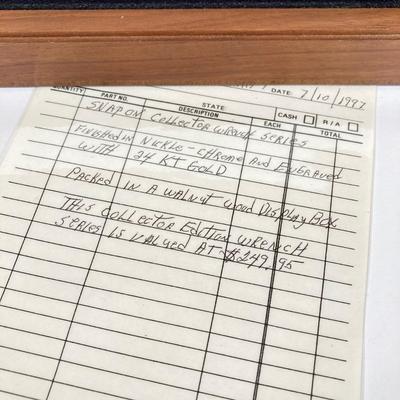 DATE: 7/10/1997
STATE CASH R/A
QUANTITY PART NO. DESCRIPTION EACH TOTAL
SNAPON COLLECTOR WRENCH SERIES
FINISHED IN NICKLE-CHROME AND ENGRAVED
WITH 24 KT GOLD
PACKED IN A WALNUT WOOD DISPLAY BOX
THIS COLLECTOR EDITION WRENCH
SERIES IS VALUED AT $249.95